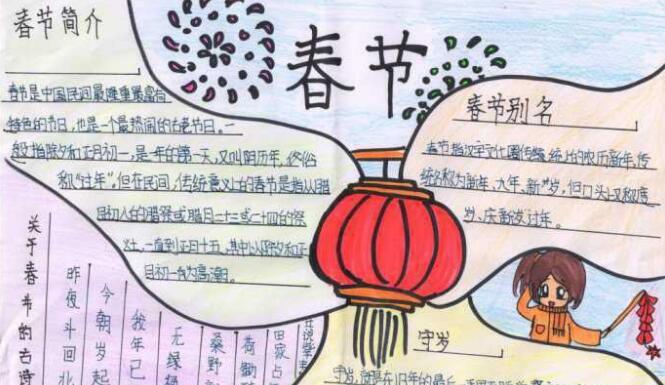 春节
春节简介
春节是中国民间最隆重最富有
特色的节日,也是一个最热闹的古老节日。一
般指除夕和正月初一,是一年的第一天,又叫阴历年,俗
和“过年”,但在民间,传统意义上的春节是指从腊
月初八的腊祭或腊月二十三或二十四的祭
灶,一直到正月十五,其中以除夕和正
月初一为高潮日。
春节别名
春节指汉字文化圈传统上的农历新年,传
统名称为新年、大年、新岁,但口头又称度
岁、庆新岁、过年。
关于春节的古诗
昨夜斗回北
今朝岁起
我年已
无
桑野
荷锄
田家占
守岁
守岁,就是在旧年的最后